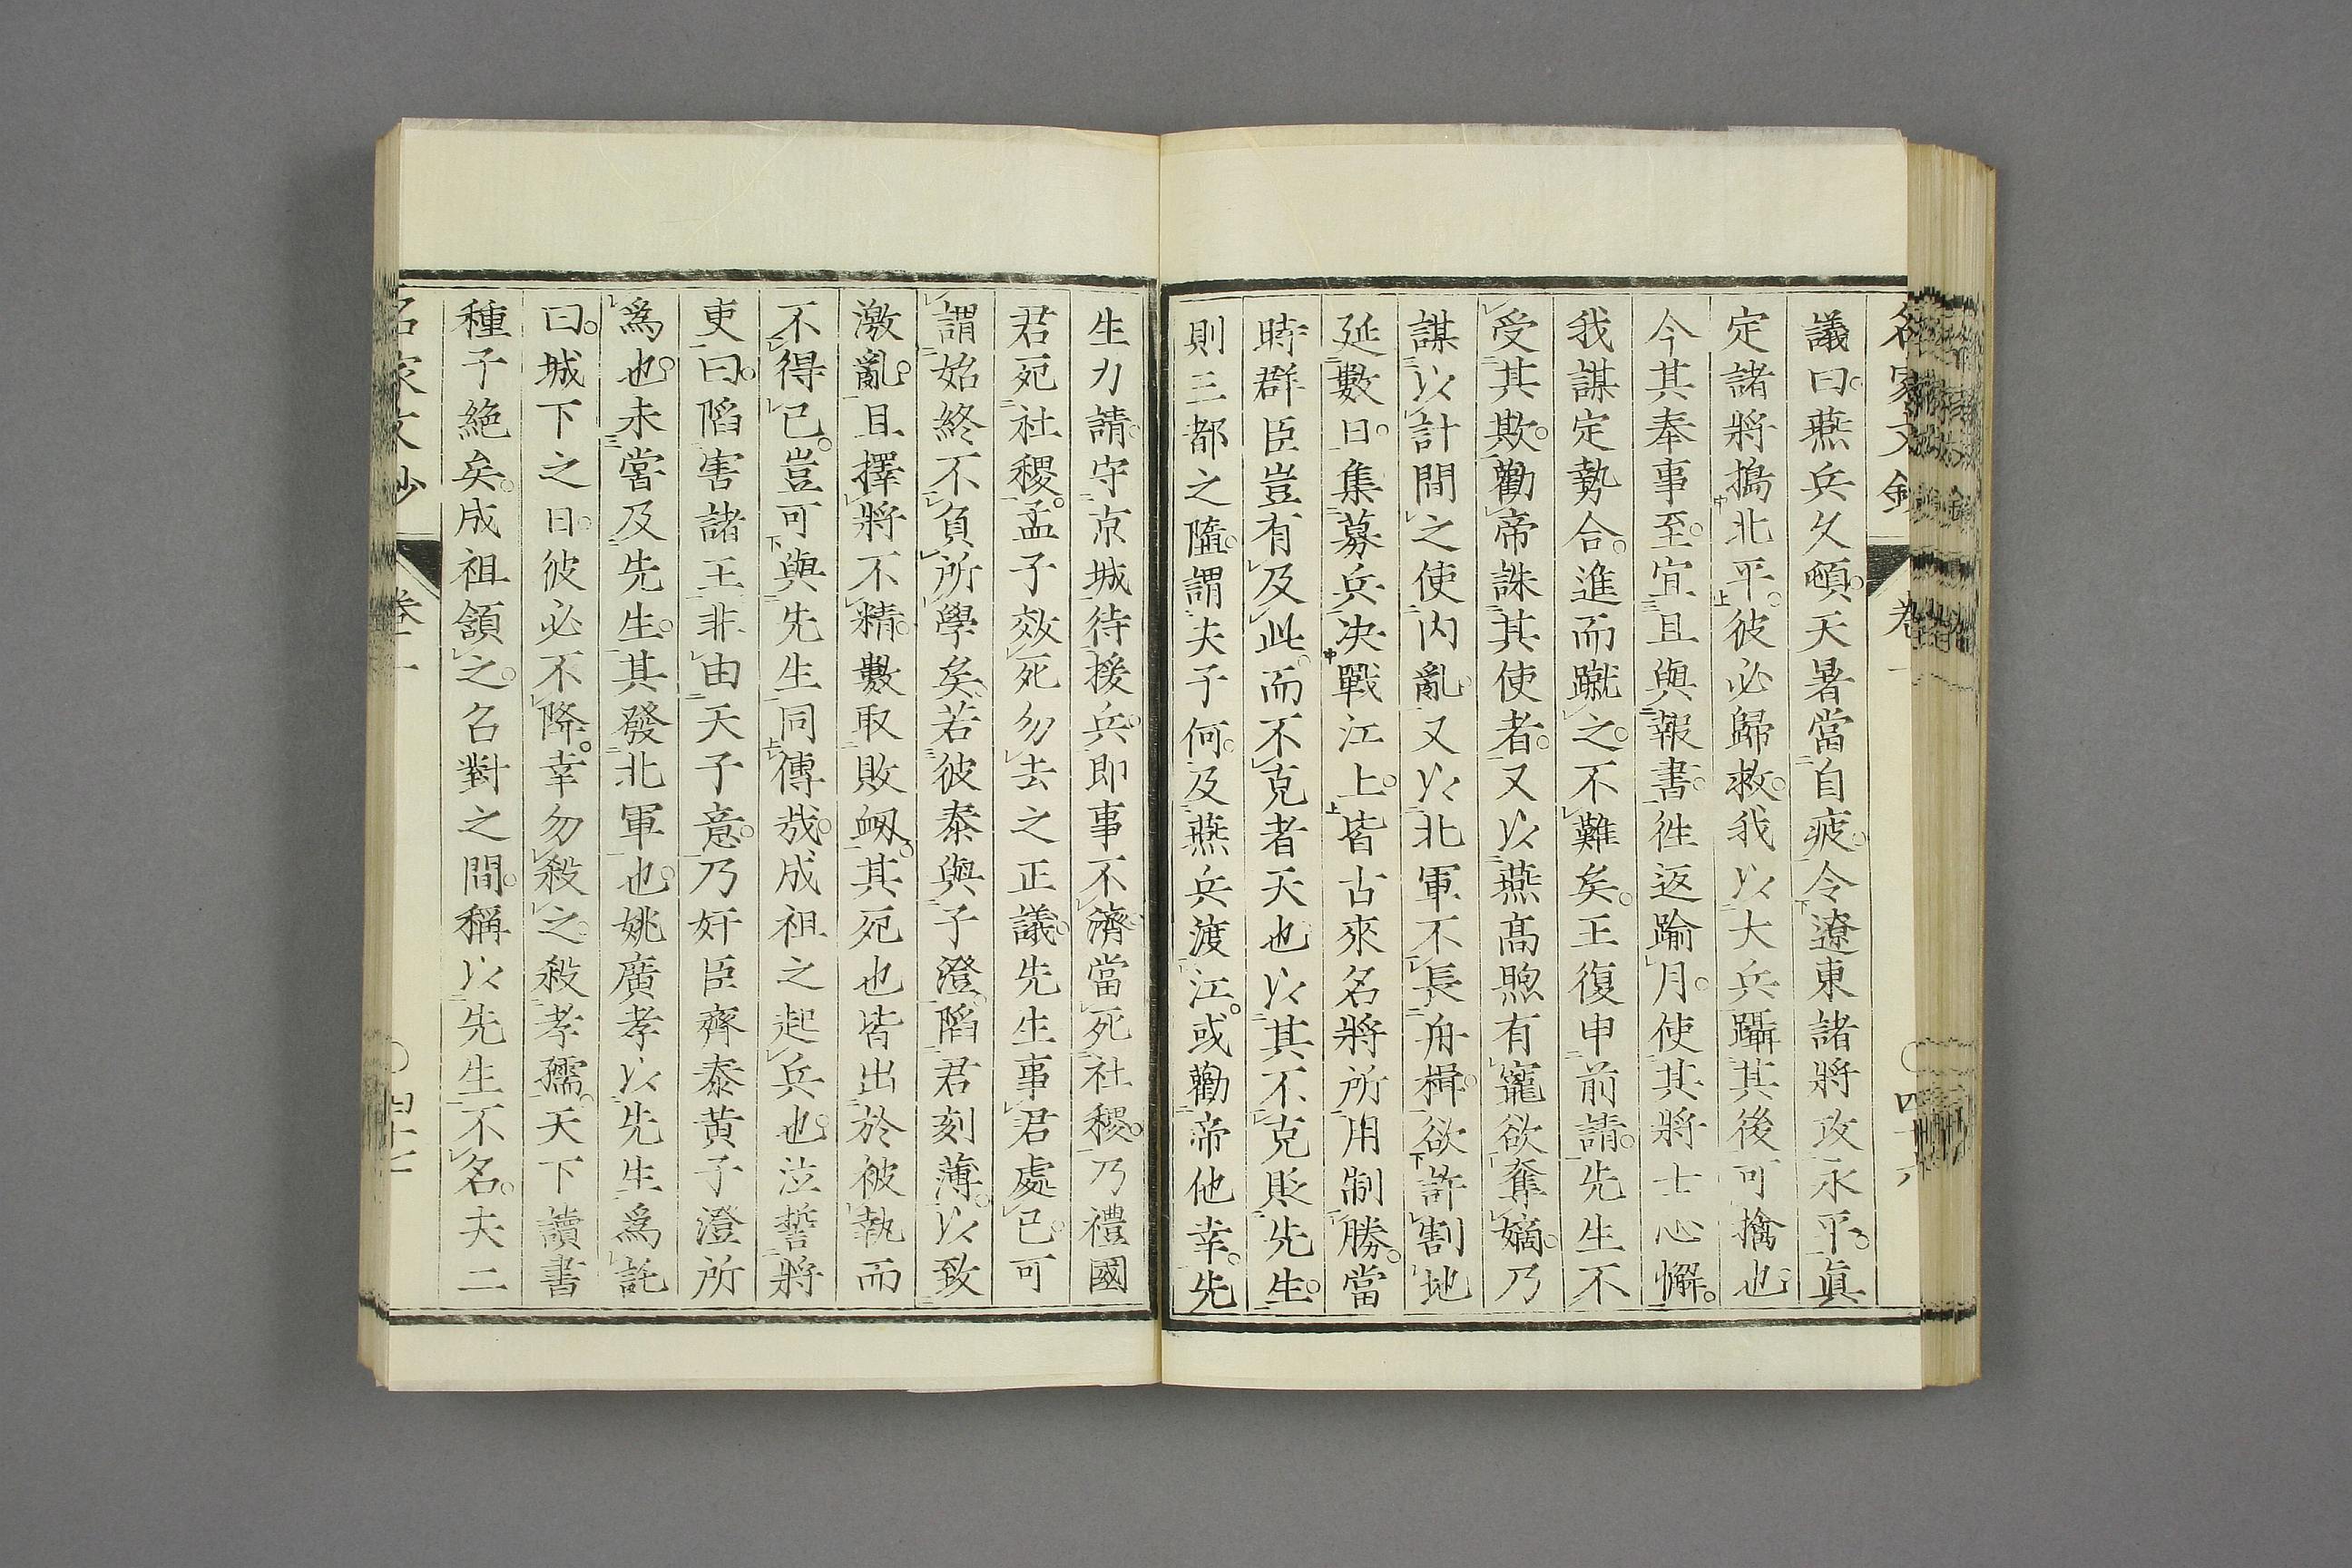 名家文鈔 卷一 四十六
議曰。燕兵久頓。天暑當自疲。令遼東諸將攻永平。眞
定諸將搗北平。彼必歸救。我以大兵躡其後可擒也。
今其奉事至。宜且與報書。徃返踰月。使其將士心懈。
我謀定勢合。進而蹴之。不難矣。王復申前請。先生不
受其欺。勸帝誅其使者。又以燕高煦有寵欲奪嫡。乃
謀以計間之使內亂。又以北軍不長舟楫。欲許割地
延數日。集募兵决戰江上。皆古來名將所用制勝。當
時群臣豈有及此。而不克者天也以其不克貶先生。
則三都之隳。謂夫子何。及燕兵渡江。或勸帝他幸。先
生力請守京城待援兵。即事不濟當死社稷。乃禮國
君死社稷。孟子效死勿去之正議。先生事君處已。可
謂始終不負所學矣。若彼泰與子澄。陷君刻薄。以致
激亂。且擇將不精。數取敗衂。其死也皆出於被執而
不得已。豈可與先生同傳哉。成祖之起兵也。泣誓將
吏曰。陷害諸王。非由天子意。乃奸臣齊泰黃子澄所
爲也。未嘗及先生。其發北軍也。姚廣孝以先生爲託
曰。城下之日。彼必不降。幸勿殺之。殺孝孺。天下讀書
種子絶矣。成祖頷之。召對之間。稱以先生不名。夫二
名家文鈔 卷一 四十七